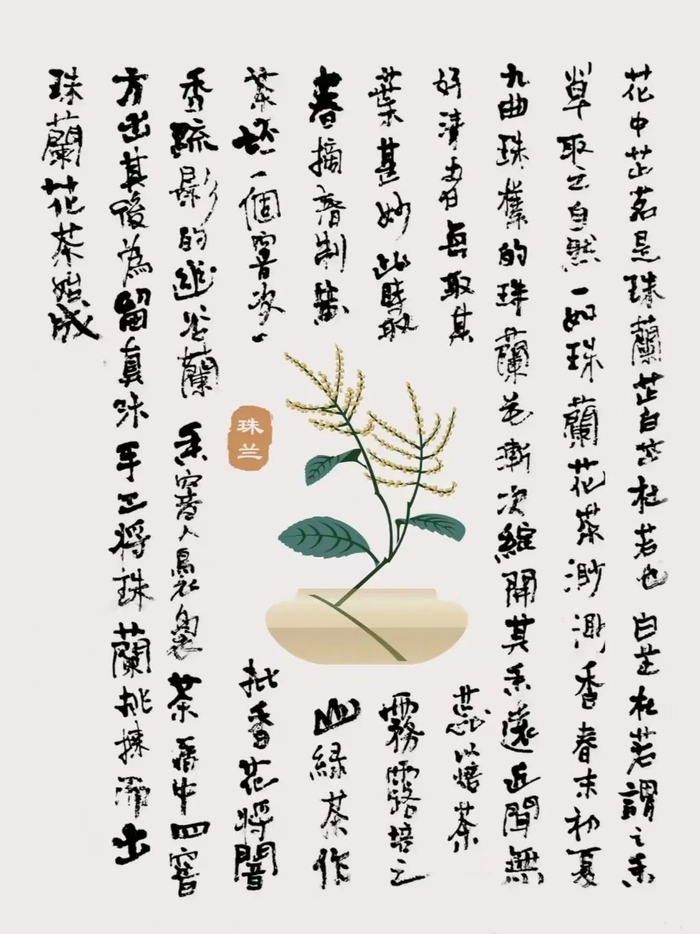 花中芷茗是珠蘭芷白芷杜若也白芷杜若謂之香
草取之自然一如珠蘭花茶渺測香春末初夏
九曲珠的珠蘭花漸次綻開其香遠近聞無
好清者每取其蕊以焙茶
葉甚妙此時取霧露培之
春摘齊制山緑茶作
茶坯一個窨次一批香花將闇
香疏影的蘭香窨人裊裊茶香中四窨
方出其後為留真味手工將珠蘭挑揀而出
珠蘭花茶始成
珠兰